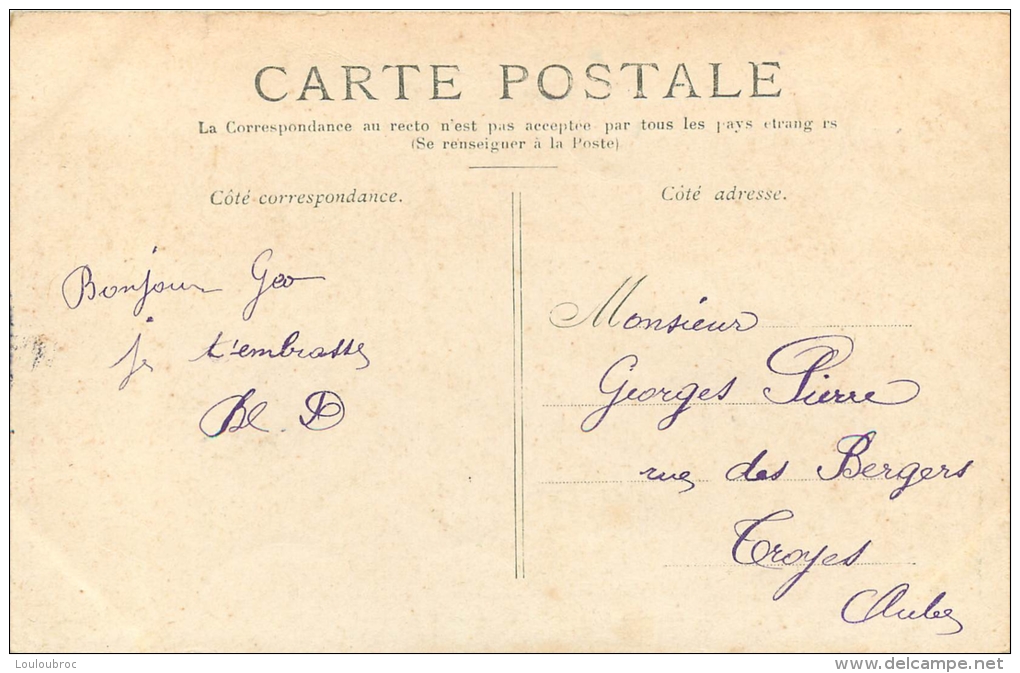 CARTE POSTALE
La Correspondance au recto n'est pas acceptée par tous les pays etrang rs
(Se renseigner à la Poste)
Côté correspondance.
Bonjour Geo
je t'embrasse
Bl. D
Côté adresse.
Monsieur
Georges Pierre
rue des Bergers
Troyes
Aube
Louloubroc
www.delcampe.net